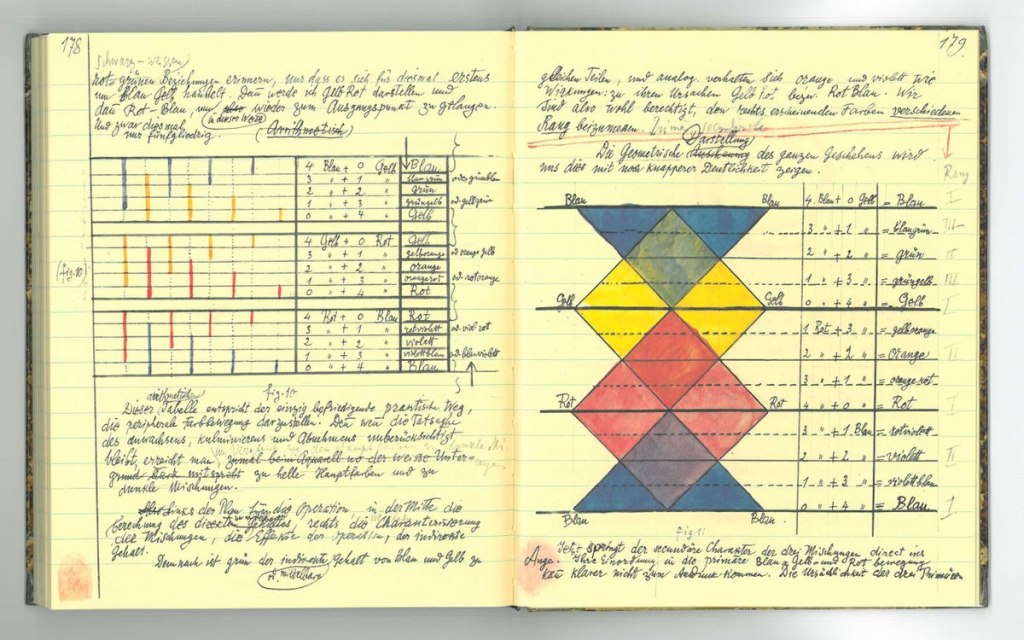 178
schwarz-weissen
rot-grünen Beziehungen erinnern, nur dass es sich für diesmal erstens
um Blau Gelb handelt. Dann werde ich Gelb Rot darstellen und
dan Rot-Blau, um also wieder zum Ausgangspunkt zu gelangen.
in dieser Weise
Und zwar diesmal (Arithmetisch)
nur fünfgliedrig.
4 Blau + 0 Gelb Blau
3 " + 1 " blaugrün od. grünblau
2 " + 2 " grün
1 " + 3 " grüngelb od. gelbgrün
0 " + 4 " Gelb
4 Gelb + 0 Rot Gelb
3 " + 1 " gelborange od. orange gelb
2 " + 2 " orange
1 " + 3 " orangerot od. rotorange
0 " + 4 " Rot
(fig. 10)
4 Rot + 0 Blau Rot
3 " + 1 " rotviolett od. viol. rot
2 " + 2 " violett
1 " + 3 " violettblau od. blauviolett
0 " + 4 " Blau
fig. 10
arithmetische
Dieser Tabelle entspricht der einzig befriedigende practische Weg,
die peripherale Farbbewegung darzustellen. Den weil die Tatsache
des Anwachsens, kulminierens und Abnehmens unberücksichtigt
bleibt, erreicht man, zumal beim Aquarell wo der weisse Unter-
grund stark mitspricht zu helle Hauptfarben und zu
dunkle Mischungen.
Links der Plan für die Operation, in der Mitte die
Berechnung des directen Gehaltes, rechts die Characterisierung
der Mischungen, die Effekte der Operation, der indirecte
Gehalt.
Demnach ist grün der indirecte Gehalt von Blau und Gelb zu
od. mittelbare
179
gleichen Teilen, und analog verhalten sich orange und violett wie
Wirkungen zu ihren Ursachen Gelb Rot bezw. Rot Blau. Wir
sind also wohl berechtigt, den rechts erscheinenden Farben verschiedenen
Rang beizumessen.
Darstellung
Die Geometrische des ganzen Geschehens wird
uns dies mit noch knapperer Deutlichkeit zeigen.
Rang
Blau Blau 4 Blau + 0 Gelb = Blau I
3 " + 1 " = blaugrün III
2 " + 2 " = grün II
1 " + 3 " = grüngelb III
Gelb Gelb 0 " + 4 " = Gelb I
1 Rot + 3 " = gelborange
2 " + 2 " = Orange II
3 " + 1 " = orangerot
Rot Rot 4 " + 0 " = Rot I
3 " + 1 Blau = rotviolett
2 " + 2 " = violett II
1 " + 3 " = violettblau
Blau Blau 0 " + 4 " = Blau I
fig. 11
Jetzt springt der secundäre Charakter der drei Mischungen direct ins
Auge. Ihre Einordnung in die primäre Blau = Gelb = und Rot bewegung
kan klarer nicht zum Ausdruck kommen. Die Ursächlichkeit der drei Primären